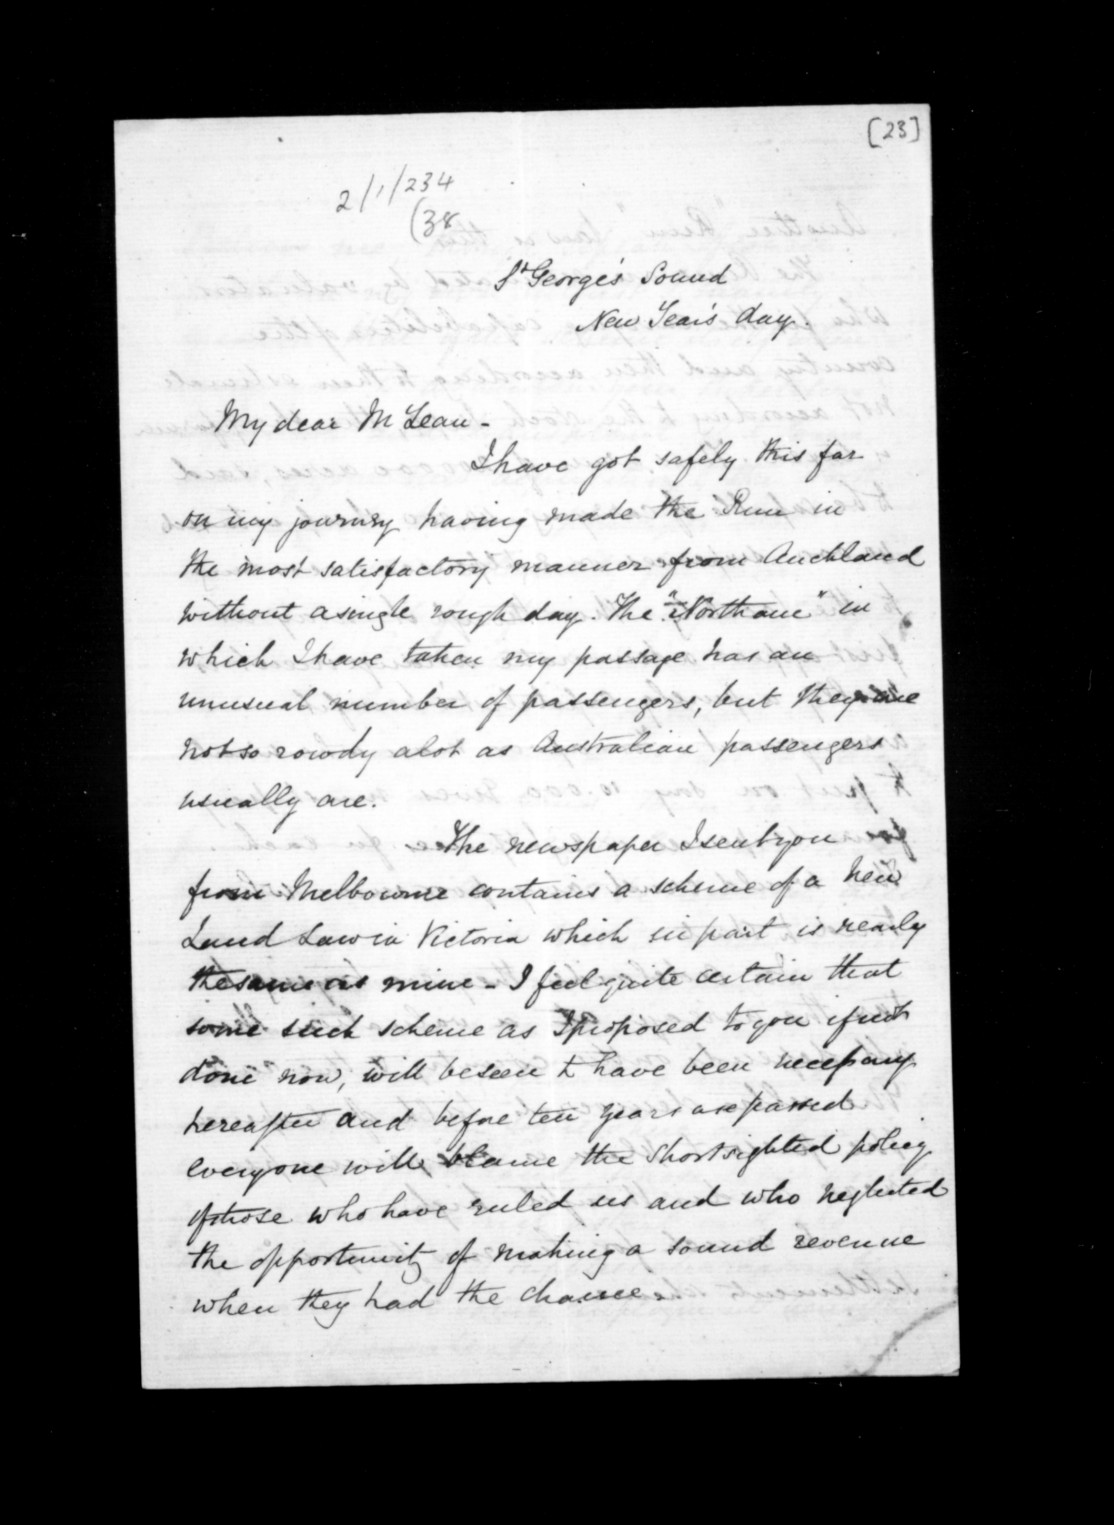 [23]
2/1/234
(38
St George's Sound
New Year's day.
My dear McLean -
I have got safely this far
on my journey having made the Run in
the most satisfactory manner from Auckland
without a single rough day. The "Northam" in
which I have taken my passage has an
unusual number of passengers, but they are
not so rowdy a lot as Australian passengers
usually are.
The newspaper I sent you
from Melbourne contains a scheme of a new
Land Law in Victoria which in part is nearly
the same as mine - I feel quite certain that
some such scheme as I proposed to you if not
done now, will be seen to have been necessary
hereafter and before ten years are passed
everyone will blame the shortsighted policy
of those who have ruled us and who neglected
the opportunity of making a sound revenue
when they had the chance.